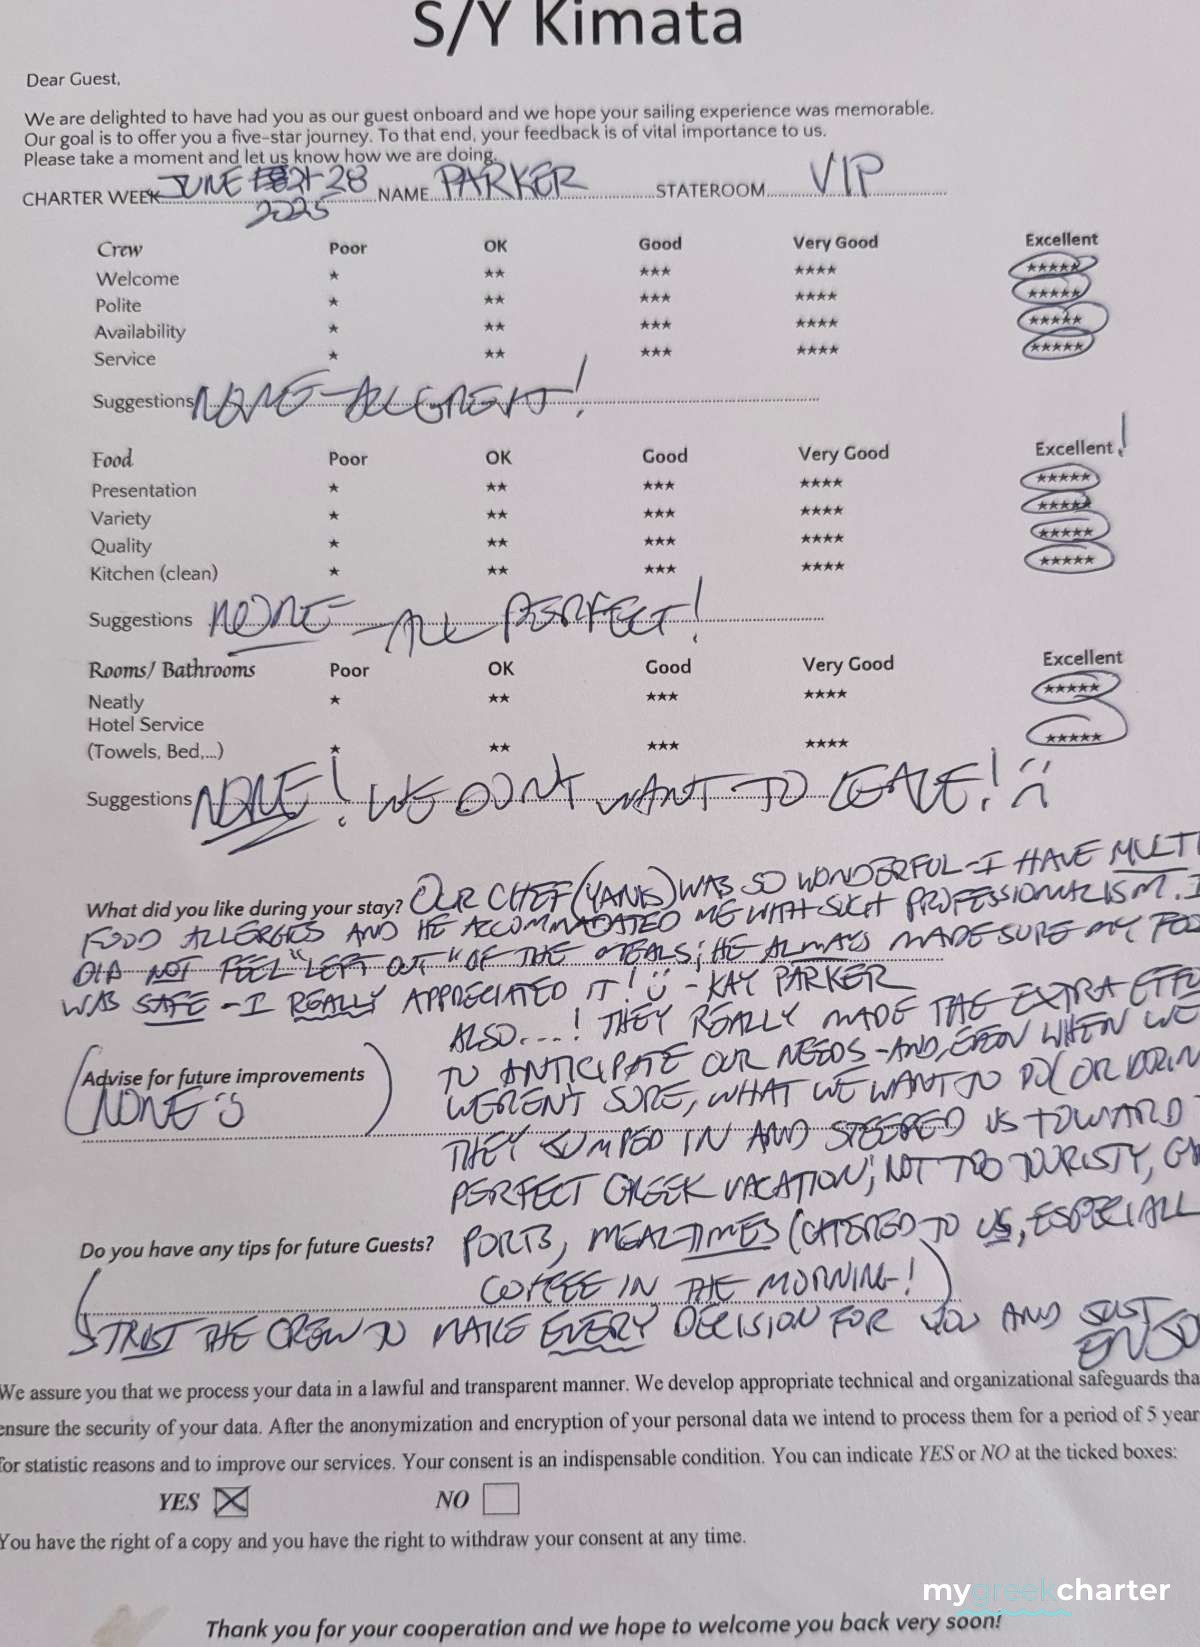 S/Y Kimata
Dear Guest,
We are delighted to have had you as our guest onboard and we hope your sailing experience was memorable.
Our goal is to offer you a five-star journey. To that end, your feedback is of vital importance to us.
Please take a moment and let us know how we are doing.
CHARTER WEEK JUNE 21-28 NAME PARKER STATEROOM VIP
2025
Crew Poor OK Good Very Good Excellent
Welcome ★ ★★ ★★★ ★★★★ ★★★★★
Polite ★ ★★ ★★★ ★★★★ ★★★★★
Availability ★ ★★ ★★★ ★★★★ ★★★★★
Service ★ ★★ ★★★ ★★★★ ★★★★★
Suggestions NONE - ALL GREAT!
Food Poor OK Good Very Good Excellent!
Presentation ★ ★★ ★★★ ★★★★ ★★★★★
Variety ★ ★★ ★★★ ★★★★ ★★★★★
Quality ★ ★★ ★★★ ★★★★ ★★★★★
Kitchen (clean) ★ ★★ ★★★ ★★★★ ★★★★★
Suggestions NONE - ALL PERFECT!
Rooms/ Bathrooms Poor OK Good Very Good Excellent
Neatly ★ ★★ ★★★ ★★★★ ★★★★★
Hotel Service
(Towels, Bed,...) ★ ★★ ★★★ ★★★★ ★★★★★
Suggestions NONE! WE DONT WANT TO LEAVE! :(
What did you like during your stay? OUR CHEF (YANIS) WAS SO WONDERFUL - I HAVE MULTI
FOOD ALLERGIES AND HE ACCOMMADATED ME WITH SUCH PROFESSIONALISM. I
DID NOT FEEL "LEFT OUT" OF THE MEALS; HE ALWAYS MADE SURE MY FOO
WAS SAFE - I REALLY APPRECIATED IT! :) - KAY PARKER
ALSO....! THEY REALLY MADE THE EXTRA EFFO
TO ANTICIPATE OUR NEEDS - AND, EVEN WHEN WE
Advise for future improvements
(NONE :))
WEREN'T SURE, WHAT WE WANT TO DO (OR DRIN
THEY JUMPED IN AND STEERED US TOWARD
PERFECT GREEK VACATION; NOT TOO TOURISTY,
Do you have any tips for future Guests? PORTS, MEAL-TIMES (CATERED TO US, ESPECIALL
COFFEE IN THE MORNING!)
TRUST THE CREW TO MAKE EVERY DECISION FOR YOU AND JUST
ENJO
We assure you that we process your data in a lawful and transparent manner. We develop appropriate technical and organizational safeguards tha
ensure the security of your data. After the anonymization and encryption of your personal data we intend to process them for a period of 5 year
for statistic reasons and to improve our services. Your consent is an indispensable condition. You can indicate YES or NO at the ticked boxes:
YES ☒ NO ☐
You have the right of a copy and you have the right to withdraw your consent at any time.
mygreekcharter
Thank you for your cooperation and we hope to welcome you back very soon!